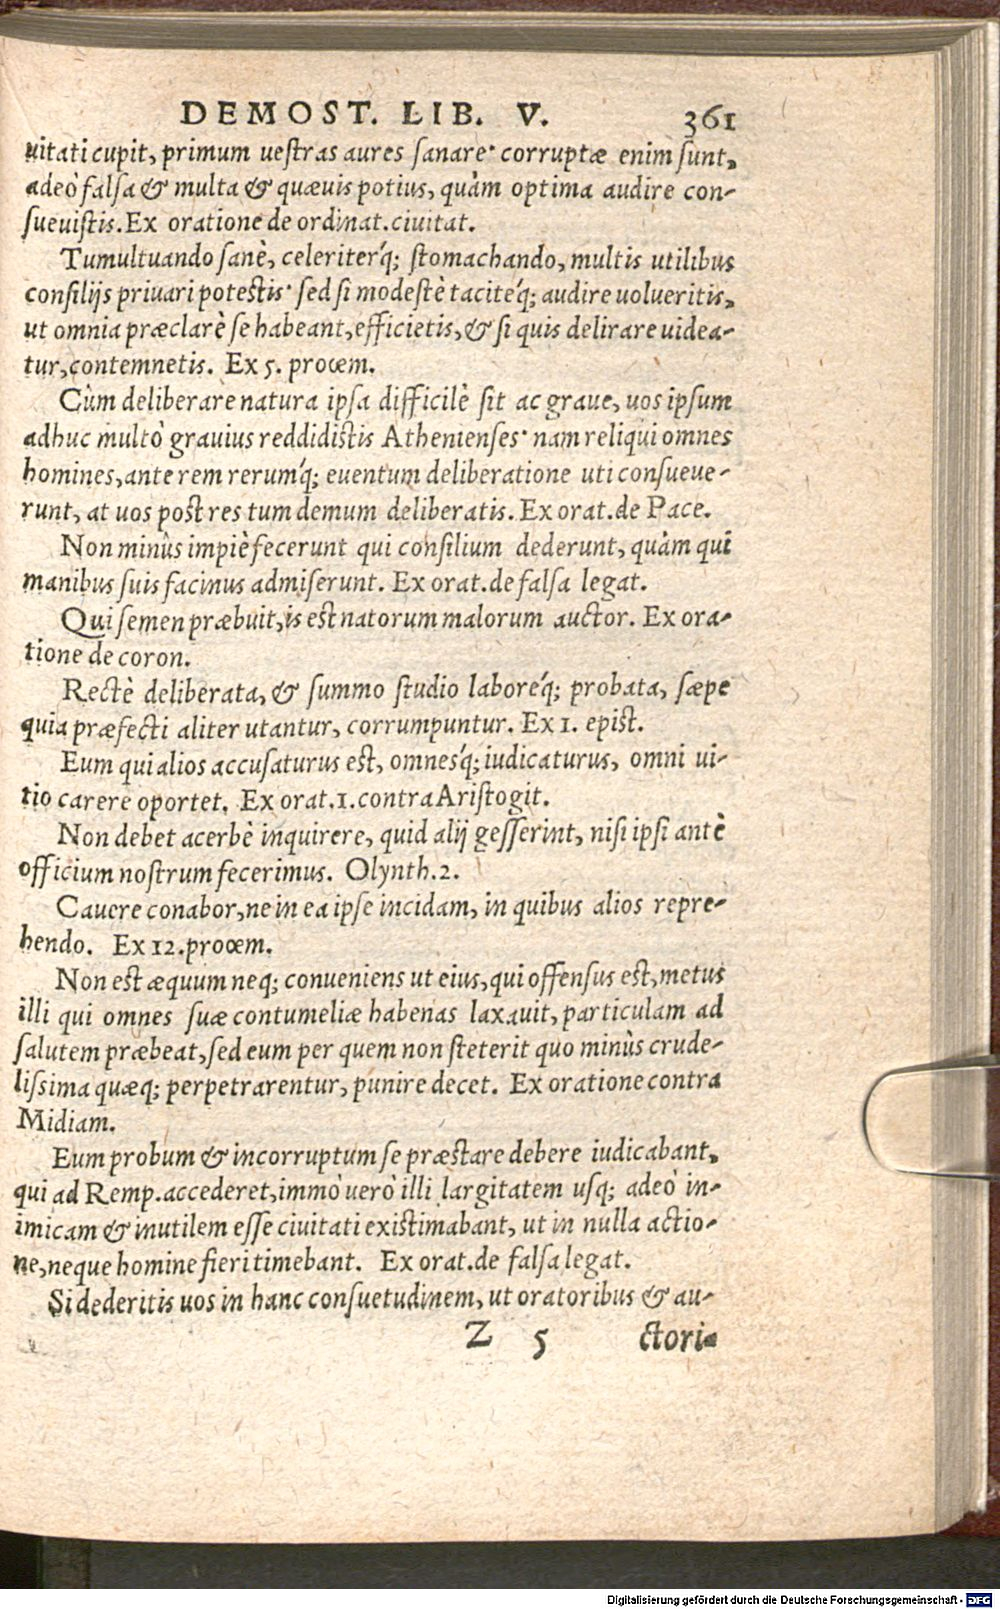 DEMOST. LIB. V. 361
uitati cupit, primum uestras aures sanare· corruptæ enim sunt,
adeò falsa & multa & quæuis potius, quàm optima audire con-
sueuistis. Ex oratione de ordinat. ciuitat.
Tumultuando sanè, celeriterq́; stomachando, multis utilibus
consilijs priuari potestis· sed si modestè taciteq́; audire uolueritis,
ut omnia præclarè se habeant, efficietis, & si quis delirare uidea-
tur, contemnetis. Ex 5. proœm.
Cùm deliberare natura ipsa difficilè sit ac graue, uos ipsum
adhuc multò grauius reddidistis Athenienses· nam reliqui omnes
homines, ante rem rerumq́; euentum deliberatione uti consueue-
runt, at uos post res tum demum deliberatis. Ex orat. de Pace.
Non minùs impiè fecerunt qui consilium dederunt, quàm qui
manibus suis facinus admiserunt. Ex orat. de falsa legat.
Qui semen præbuit, is est natorum malorum auctor. Ex ora-
tione de coron.
Rectè deliberata, & summo studio laboreq́; probata, sæpe
quia præfecti aliter utantur, corrumpuntur. Ex 1. epist.
Eum qui alios accusaturus est, omnesq́; iudicaturus, omni ui-
tio carere oportet. Ex orat. 1. contra Aristogit.
Non debet acerbè inquirere, quid alij gesserint, nisi ipsi antè
officium nostrum fecerimus. Olynth. 2.
Cauere conabor, ne in ea ipse incidam, in quibus alios repre-
hendo. Ex 12. proœm.
Non est æquum neq; conueniens ut eius, qui offensus est, metus
illi qui omnes suæ contumeliæ habenas laxauit, particulam ad
salutem præbeat, sed eum per quem non steterit quo minùs crude-
lissima quæq; perpetrarentur, punire decet. Ex oratione contra
Midiam.
Eum probum & incorruptum se præstare debere iudicabant,
qui ad Remp. accederet, immò uerò illi largitatem usq; adeò in-
imicam & inutilem esse ciuitati existimabant, ut in nulla actio-
ne, neque homine fieri timebant. Ex orat. de falsa legat.
Si dederitis uos in hanc consuetudinem, ut oratoribus & au-
Z 5 ctori-
Digitalisierung gefördert durch die Deutsche Forschungsgemeinschaft - DFG